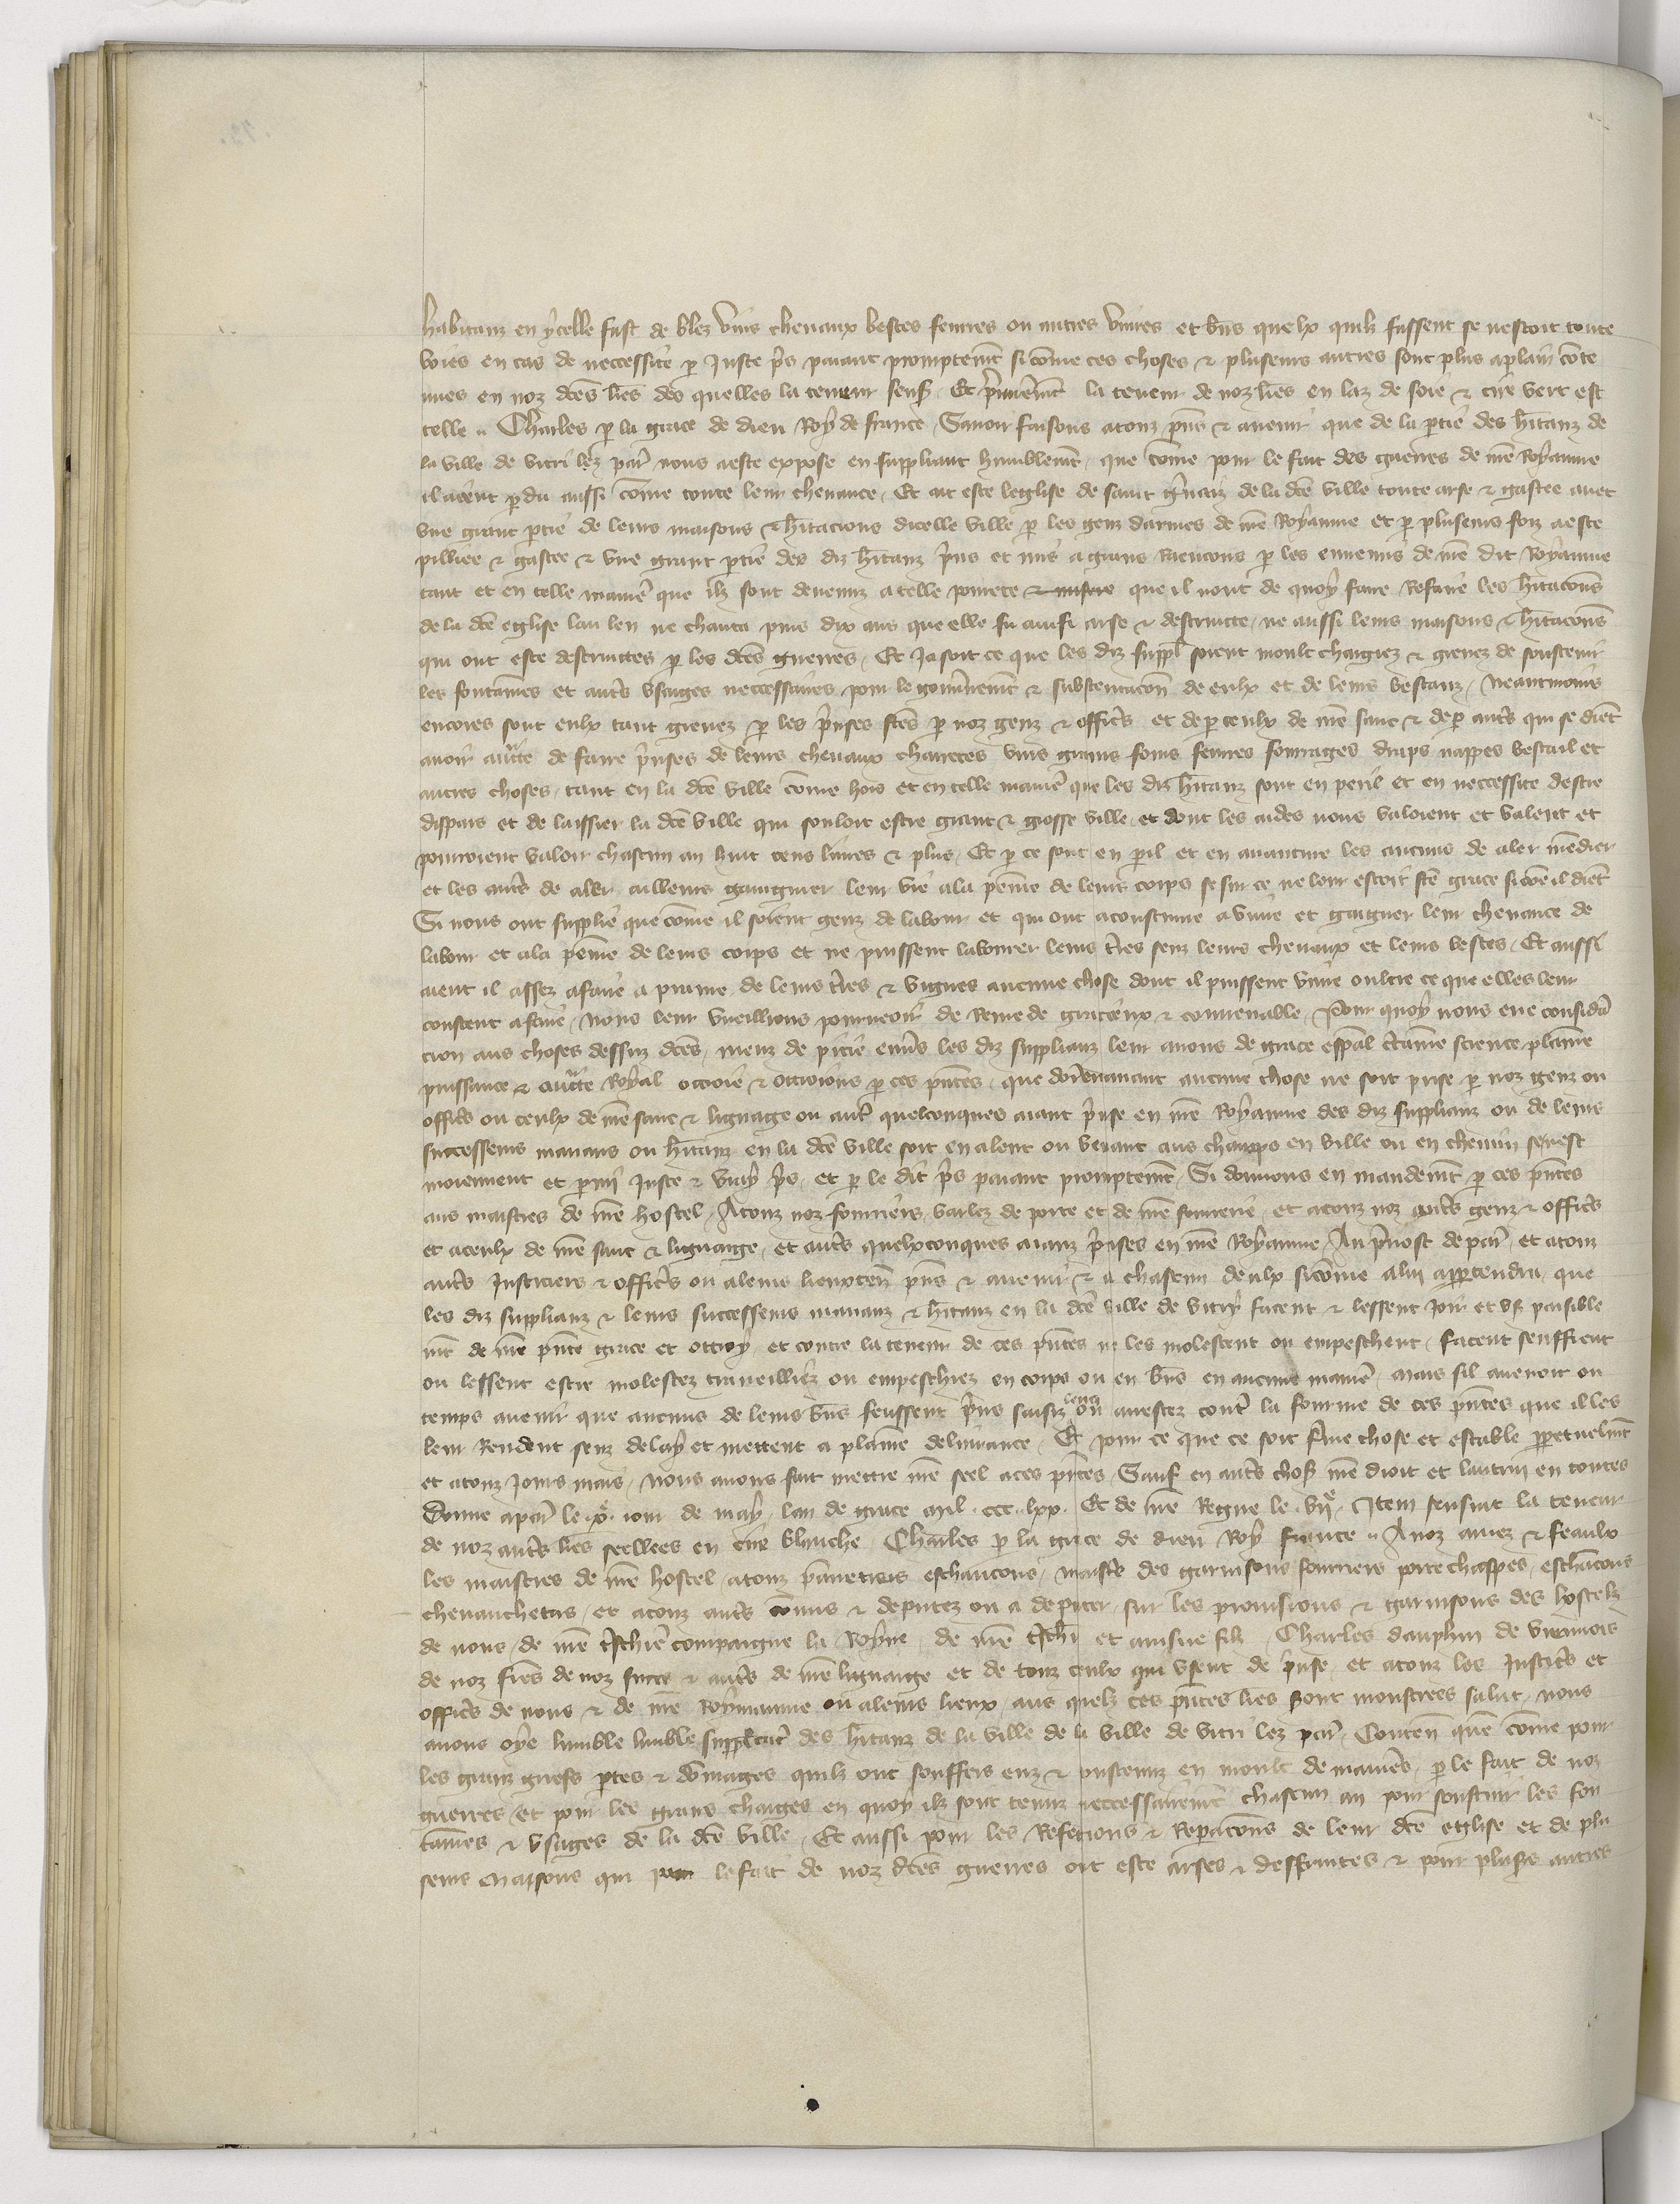 habitanz en ycelle fust de blez vins chevaux bestes feurres ou autres vivres et bñs quelx quilz fussent se nestoit toute
voies en cas de neccessite p juste pris paiant promptemt si cõme ces choses & plusieurs autres sont plus aplain cõte
nues en noz dces lres des quelles la teneur sensuit Et premieremt la teneur de noz lres en laz de soie & cire vert est
telle Charles p la grace de dieu Roy de france Savoir faisons a touz pns & avenir que de la ptie des hitanz de
la ville de vitri lez par nous a este expose en suppliant humblemt que cõme pour le fait des guerres de nre Royaume
il aient pdu aussi cõme toute leur chevance Et ait este leglise de saint gvais de la dce ville toute arse & gastee avec
une grant ptie de leurs maisons & hitacions dicelle ville p les genz darmes de nre Royaume et p plusieurs foiz a este
pilliee & gastee & une grant ptie des diz hitanz pris et mis a grans raencons p les ennemis de nre dit Royaume
tant et en telle maniere que ilz sont devenuz a telle povrete & misere que il nont de quoy faire refaire les hitacons
de la dce eglise lau len ne chanta puis dix ans que elle fu ainsi arse & destruicte ne aussi leurs maisons & hitacons
qui ont este destruictes p les dces guerres Et ja soit ce que les diz suppl soient moult chargiez & grevez de soustenir
les fontaines et auts usaiges neccessaires pour le gouvnemt & substentacon de eulx et de leurs bestaux Neantmoins
encores sont eulx tant grevez p les prinses fces p noz genz & offics et de p ceulx de nre sanc & de p auts qui se dient
avoir aucte de faire prinses de leurs chevaux charetes vins grains foins feurres fourrages draps nappes bestail et
autres choses tant en la dce ville cõme hors et en telle maniere que les diz hitanz sont en peril et en neccessite destre
dispars et de laissier la dce ville qui souloit estre grant & grosse ville et dont les aides nous valoient et valent et
pourroient valoir chascun an huit cens livres & plus Et p ce sont en pil et en avanture les aucuns de aler mendier
et les auts de aler ailleurs gaaignier leur vie a la peine de leurs corps se sur ce ne leur estoit fce grace si cõe il dient
Si nous ont supplie que cõme il soient genz de labour et qui ont acoustume a vivre et gaigner leur chevance de
labour et a la peine de leurs corps et ne puissent labourer leurs tres senz leurs chevaux et leurs bestes Et aussi
aient il assez a faire a prame de leurs tres & vignes aucune chose dont il puissent vivre oultre ce que elles leur
coustent a faire Nous leur vueillions pourveoir de remede gracieux & convenable Pour quoy nous eue consida
cion aus choses dessuz dces meuz de pitie envs les diz supplianz leur avons de grace espal ctaine science plaine
puissance & aucte royal ottroie & ottroions p ces pntes que dorenavant aucune chose ne soit prise p noz genz ou
offics ou ceulx de nre sanc & lignage ou autr quelconques aiant prinse en nre Royaume des diz supplianz ou de leurs
successeurs manans ou hitanz en la dce ville soit en alent ou venant aus champs en ville ou en chemin se nest
moiennent et pmi juste & vray pris et p le dit pris paiant promptemt Si donnons en mandemt p ces pntes
aus maistres de nre hostel A touz noz fourriers varlez de porte et de nre fourriere et a touz noz auts genz & offics
et a ceulx de nre sanc & lignaige et auts quelxconques aianz prises en nre Royaume Au prevost de par et a touz
auts justiciers & offics ou a leurs lieuxten pns & avenir & a chascun deulx si cõme a luy apptendra que
les diz supplianz & leurs successeurs mananz & hitanz en la dce ville de vitry facent & lessent joir et us paisible
mt de nre pnte grace et ottroy et contre la teneur de ces pntes ne les molestent ou empeschent facent seuffrent
ou lessent estre molestez traveilliez ou empeschiez en corps ou en bns en aucune maniere Mais sil avenoit ou
temps avenir que aucuns de leurs bns feussent prins saisiz leuez ou arrestez contr la fourme de ces pntes que il les
leur rendent senz delay et mettent a plaine delivrance Et pour ce que ce soit ferme chose et estable ppetuelmt
et a touz jours mais Nous avons fait mettre nre seel a ces pntes Sauf en auts chos nre droit et lautruy en toutes
Donne a par le xe jour de may lan de grace mil ccc lxx Et de nre regne le viie Item sensuit la teneur
de noz auts lres seellees en cire blanche Charles p la grace de dieu Roy france A noz amez & feaulx
les maistres de nre hostel a touz panetiers eschancons maists des garnisons fourriers portechappes eschacons
chevaucheurs et a touz auts cõmis & deputez ou a deputer sur les provisions & garnisons des hostelz
de nous de nre tschiere compaigne la Royne de nre tschr et ainsne filz Charles dauphin de viennois
de noz fres de noz & auts de nre lignaige et de touz ceulx qui usent de prinse et a touz les justics et
offics de nous & de nre Royaume ou a leurs lieux aus quelz ces pntes lres sont monstrees salut Nous
avons oye humble humble supplicatr des hitanz de la ville de la ville de vitri lez par Conten que cõme pour
les granz griefs ptes & dõmages quilz ont souffers euz & soustenuz en moult de manieres p le fait de noz
guerres et pour les grans charges en quoy ilz sont tenuz neccessairemt chascun an pour soustenir les fon
taines & usages de la dce ville Et aussi pour les refections & reparacons de leur dce eglise et de plu
seurs maisons qui pour le fait de noz dces guerres ont este arses & destruites & pour pluss autres